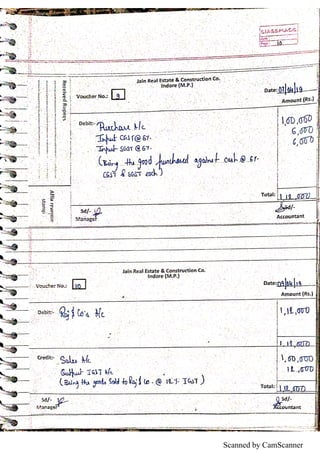 CLASSMATE
Date
Page 10
Jain Real Estate & Construction Co.
Indore (M.P.)
Voucher No.: 9
Date: 07/04/19
Amount (Rs.)
Debit:- Purchase A/c 1,00,000
Input CGST @ 6% 6,000
Input SGST @ 6% 6,000
(Being the good purchased against cash @ 6%
CGST & SGST each)
Total: 1,12,000
Sd/-
Manager
Sd/-
Accountant
Received Rupees
Affix revenue
stamp
Jain Real Estate & Construction Co.
Indore (M.P.)
Voucher No.: 10
Date: /04/19
Amount (Rs.)
Debit:- Raj & Co's A/c 1,12,000
1,12,000
Credit:- Sales A/c 1,00,000
Output IGST A/c 12,000
(Being the goods sold to Raj & Co. @ 12% IGST)
Total: 1,12,000
Sd/-
Manager
Sd/-
Accountant
Scanned by CamScanner